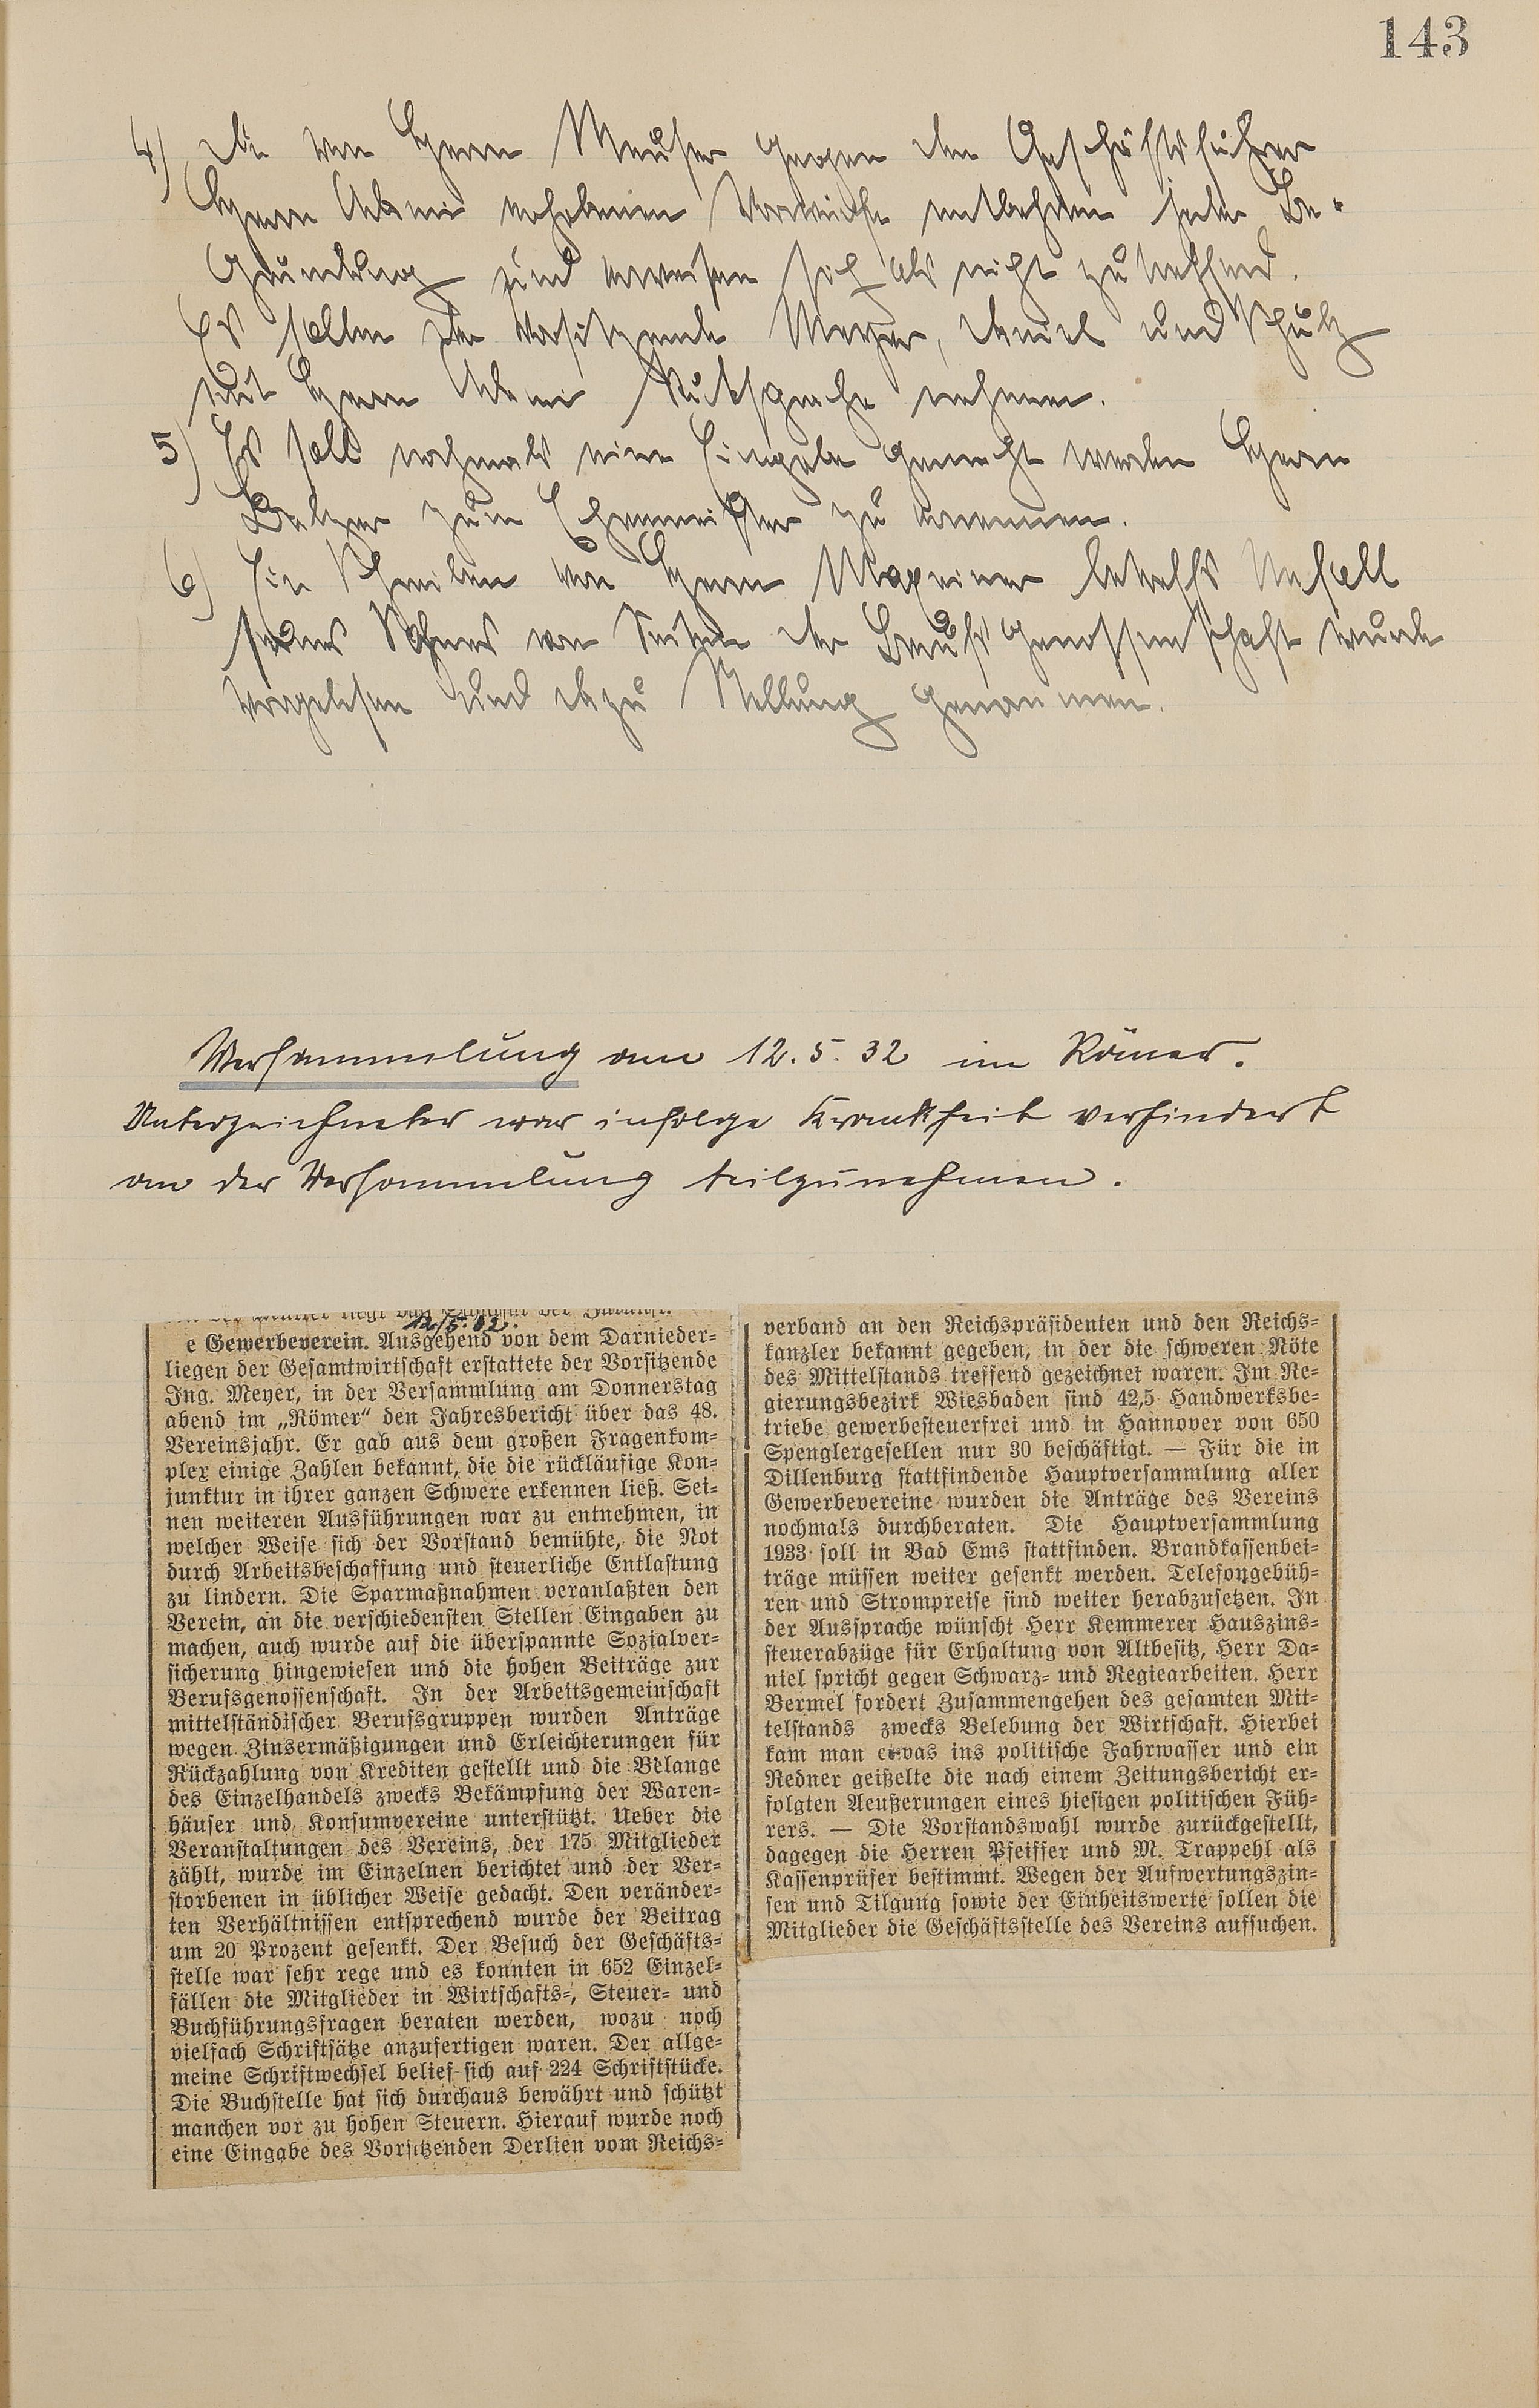 143
4) Die von Herrn Meuser gegen den Geschäftsführer
Herrn Adami erhobenen Vorwürfe entbehren jeder Be-
gründung und erweisen sich als nicht zutreffend.
Es sollen der Vorsitzende Meyer, Daniel und Schulz
mit Herrn Adami Rücksprache nehmen.
5) Es soll nochmals eine Eingabe gemacht werden Herrn
Balzer zum Ehrenmeister zu ernennen.
6) Ein Schreiben von Herrn Maxeiner betreffs Unfall
seines Sohnes von Seiten der Berufsgenossenschaft wurde
vorgelesen und dazu Stellung genommen.
Versammlung am 12.5.32 im Römer.
Unterzeichneter war infolge Krankheit verhindert
an der Versammlung teilzunehmen.
12/5.32.
e Gewerbeverein. Ausgehend von dem Darnieder-
liegen der Gesamtwirtschaft erstattete der Vorsitzende
Ing. Meyer, in der Versammlung am Donnerstag
abend im „Römer“ den Jahresbericht über das 48.
Vereinsjahr. Er gab aus dem großen Fragenkom-
plex einige Zahlen bekannt, die die rückläufige Kon-
junktur in ihrer ganzen Schwere erkennen ließ. Sei-
nen weiteren Ausführungen war zu entnehmen, in
welcher Weise sich der Vorstand bemühte, die Not
durch Arbeitsbeschaffung und steuerliche Entlastung
zu lindern. Die Sparmaßnahmen veranlaßten den
Verein, an die verschiedensten Stellen Eingaben zu
machen, auch wurde auf die überspannte Sozialver-
sicherung hingewiesen und die hohen Beiträge zur
Berufsgenossenschaft. In der Arbeitsgemeinschaft
mittelständischer Berufsgruppen wurden Anträge
wegen Zinsermäßigungen und Erleichterungen für
Rückzahlung von Krediten gestellt und die Belange
des Einzelhandels zwecks Bekämpfung der Waren-
häuser und Konsumvereine unterstützt. Ueber die
Veranstaltungen des Vereins, der 175 Mitglieder
zählt, wurde im Einzelnen berichtet und der Ver-
storbenen in üblicher Weise gedacht. Den veränder-
ten Verhältnissen entsprechend wurde der Beitrag
um 20 Prozent gesenkt. Der Besuch der Geschäfts-
stelle war sehr rege und es konnten in 652 Einzel-
fällen die Mitglieder in Wirtschafts-, Steuer- und
Buchführungsfragen beraten werden, wozu noch
vielfach Schriftsätze anzufertigen waren. Der allge-
meine Schriftwechsel belief sich auf 224 Schriftstücke.
Die Buchstelle hat sich durchaus bewährt und schützt
manchen vor zu hohen Steuern. Hierauf wurde noch
eine Eingabe des Vorsitzenden Derlien vom Reichs-
verband an den Reichspräsidenten und den Reichs-
kanzler bekannt gegeben, in der die schweren Nöte
des Mittelstands treffend gezeichnet waren. Im Re-
gierungsbezirk Wiesbaden sind 42,5 Handwerksbe-
triebe gewerbesteuerfrei und in Hannover von 650
Spenglergesellen nur 30 beschäftigt. — Für die in
Dillenburg stattfindende Hauptversammlung aller
Gewerbevereine wurden die Anträge des Vereins
nochmals durchberaten. Die Hauptversammlung
1933 soll in Bad Ems stattfinden. Brandkassenbei-
träge müssen weiter gesenkt werden. Telefongebüh-
ren und Strompreise sind weiter herabzusetzen. In
der Aussprache wünscht Herr Kemmerer Hauszins-
steuerabzüge für Erhaltung von Altbesitz, Herr Da-
niel spricht gegen Schwarz- und Regiearbeiten. Herr
Bermel fordert Zusammengehen des gesamten Mit-
telstands zwecks Belebung der Wirtschaft. Hierbei
kam man etwas ins politische Fahrwasser und ein
Redner geißelte die nach einem Zeitungsbericht er-
folgten Aeußerungen eines hiesigen politischen Füh-
rers. — Die Vorstandswahl wurde zurückgestellt,
dagegen die Herren Pfeiffer und M. Trappehl als
Kassenprüfer bestimmt. Wegen der Aufwertungszin-
sen und Tilgung sowie der Einheitswerte sollen die
Mitglieder die Geschäftsstelle des Vereins aufsuchen.